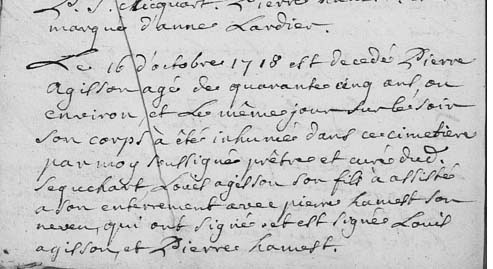 P. S. Macquart. Pierre hamest
marque d'anne Lardier.
Le 16 d'octobre 1718 est decedé Pierre
agisson agé de quarante cinq ans, ou
environ, et Le même jour sur le soir
son corps à été inhumé dans ce cimetière
par moy soussigné prêtre et curé dud.
Sequehart Loüis agisson son fils à assisté
a son enterrement avec pierre hamest son
neveu, qui ont signé et est signée Louis
agisson, et Pierre hamest.